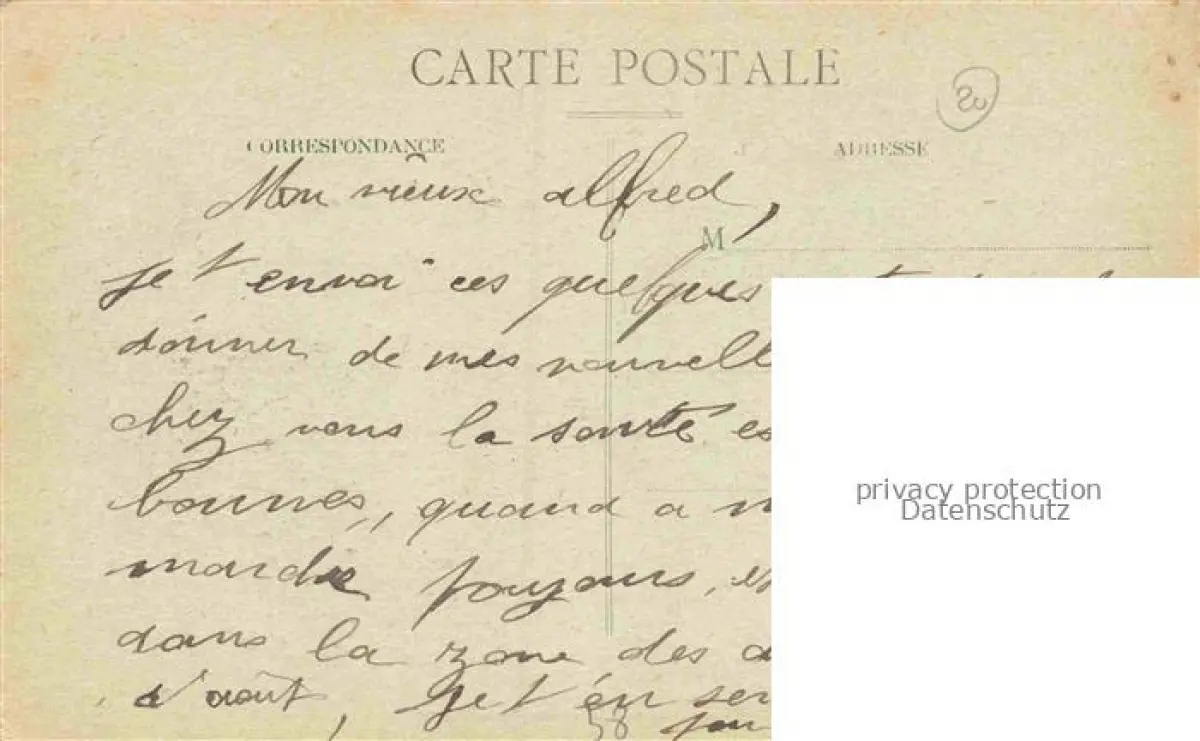 CARTE POSTALE
20
CORRESPONDANCE
ADRESSE
Mon vieux alfred,
M
je t envoi ces quelques
donner de mes nouvell
chez vous la santé es
bonnes, quand a m
marche toujours, et
dans la zone des a
d'août, je t'en ser
58
privacy protection
Datenschutz